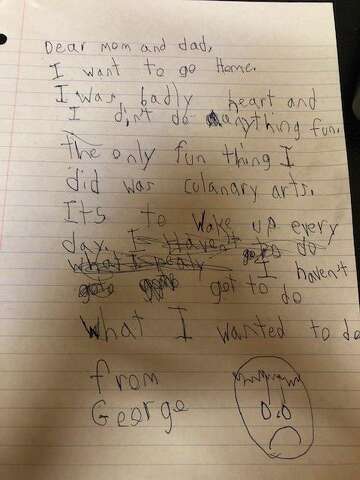 Dear mom and dad,
I want to go Home.
I was badly heart and
I din't do anything fun.
The only fun thing I
did was culanary arts.
Its to wake up every
day. I Haven't to do
what I I haven't
got to do
what I wanted to do
from
George